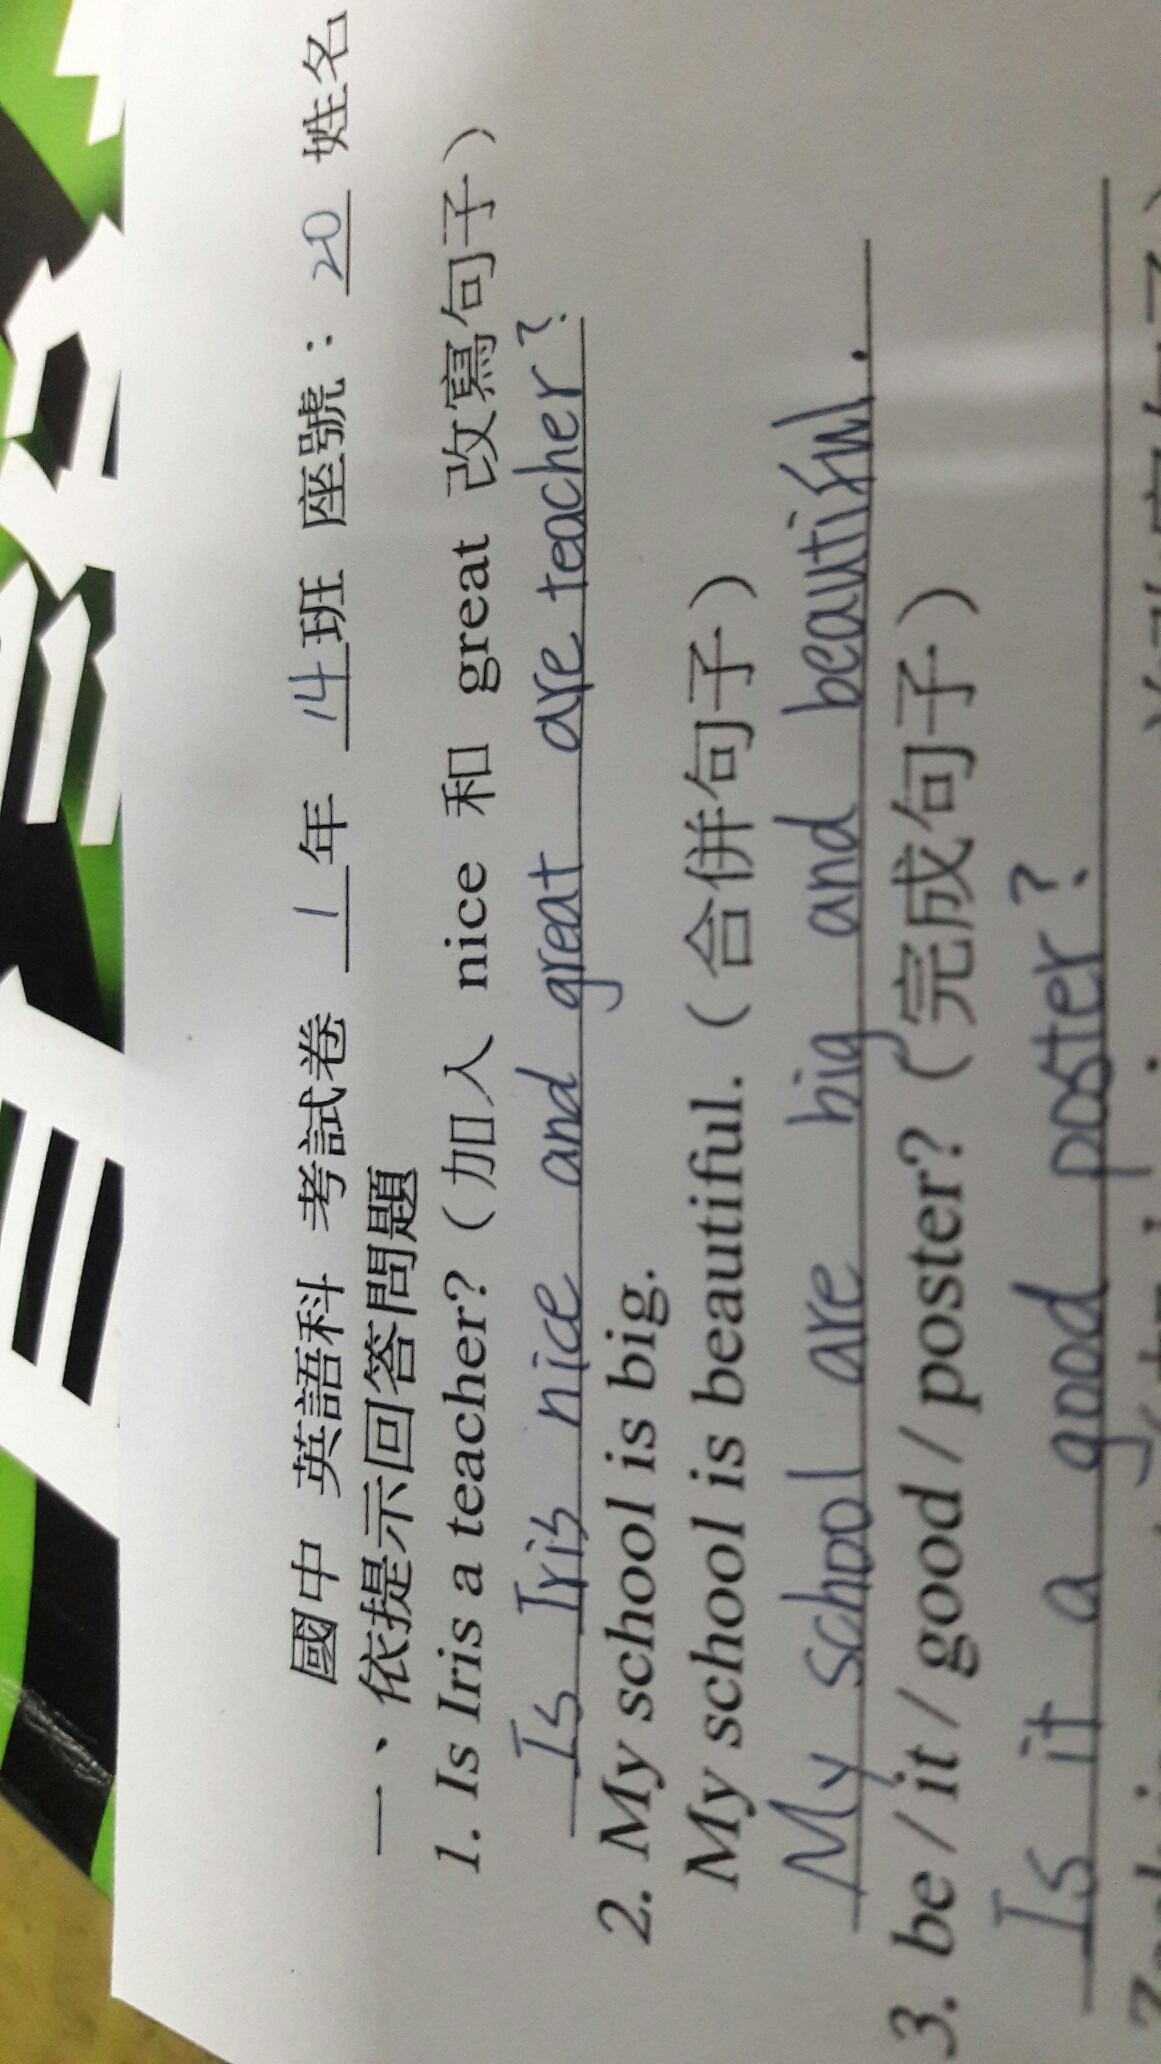 國中 英語科 考試卷 1年 14班 座號：20 姓名
一、依提示回答問題
1. Is Iris a teacher?（加入 nice 和 great 改寫句子）
Is Iris nice and great are teacher?
2. My school is big.
My school is beautiful.（合併句子）
My school are big and beautiful.
3. be / it / good / poster?（完成句子）
Is it a good poster?